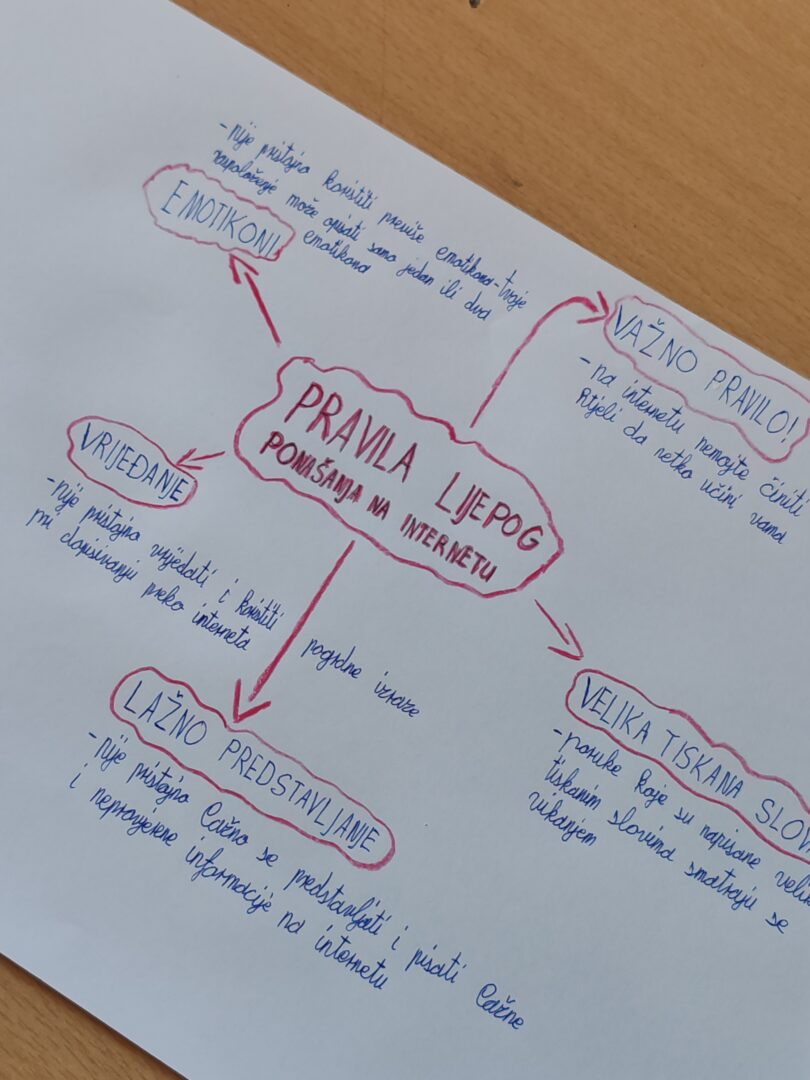 - nije pristojno koristiti previše emotikona - tvoje
raspoloženje može opisati samo jedan ili dva
emotikona
EMOTIKONI
VAŽNO PRAVILO!
- na internetu nemojte činiti
htjeli da netko učini vama
PRAVILA LIJEPOG
PONAŠANJA NA INTERNETU
VRIJEĐANJE
- nije pristojno vrijeđati i koristiti pogrdne izraze
pri dopisivanju preko interneta
VELIKA TISKANA SLOVA
- poruke koje su napisane veliki
tiskanim slovima smatraju se
vikanjem
LAŽNO PREDSTAVLJANJE
- nije pristojno lažno se predstavljati i pisati lažne
i neprovjerene informacije na internetu